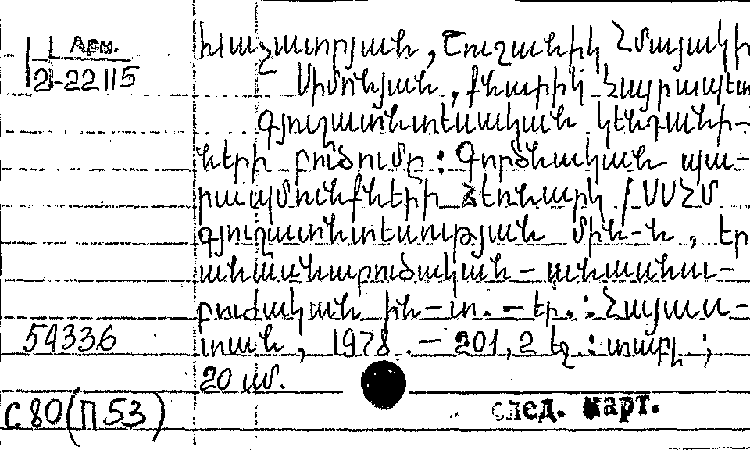 Арм.
2-22115
Խաչատրյան, Շուշանիկ Հմայակի
Սիմոնյան, Քնարիկ Հայրապետ
Գյուղատնտեսական կենդանի-
ների բուծումը: Գործնական պա-
րապմունքների ձեռնարկ / ՍՍՀՄ
գյուղատնտեսության մին-ն, Եր
անասնաբուծական-անասնա-
բուժական ին-տ. - Եր.: Հայաս-
54336
տան, 1978. - 201, 2 էջ: տաբլ.;
20 սմ.
С80(П53)
след. карт.